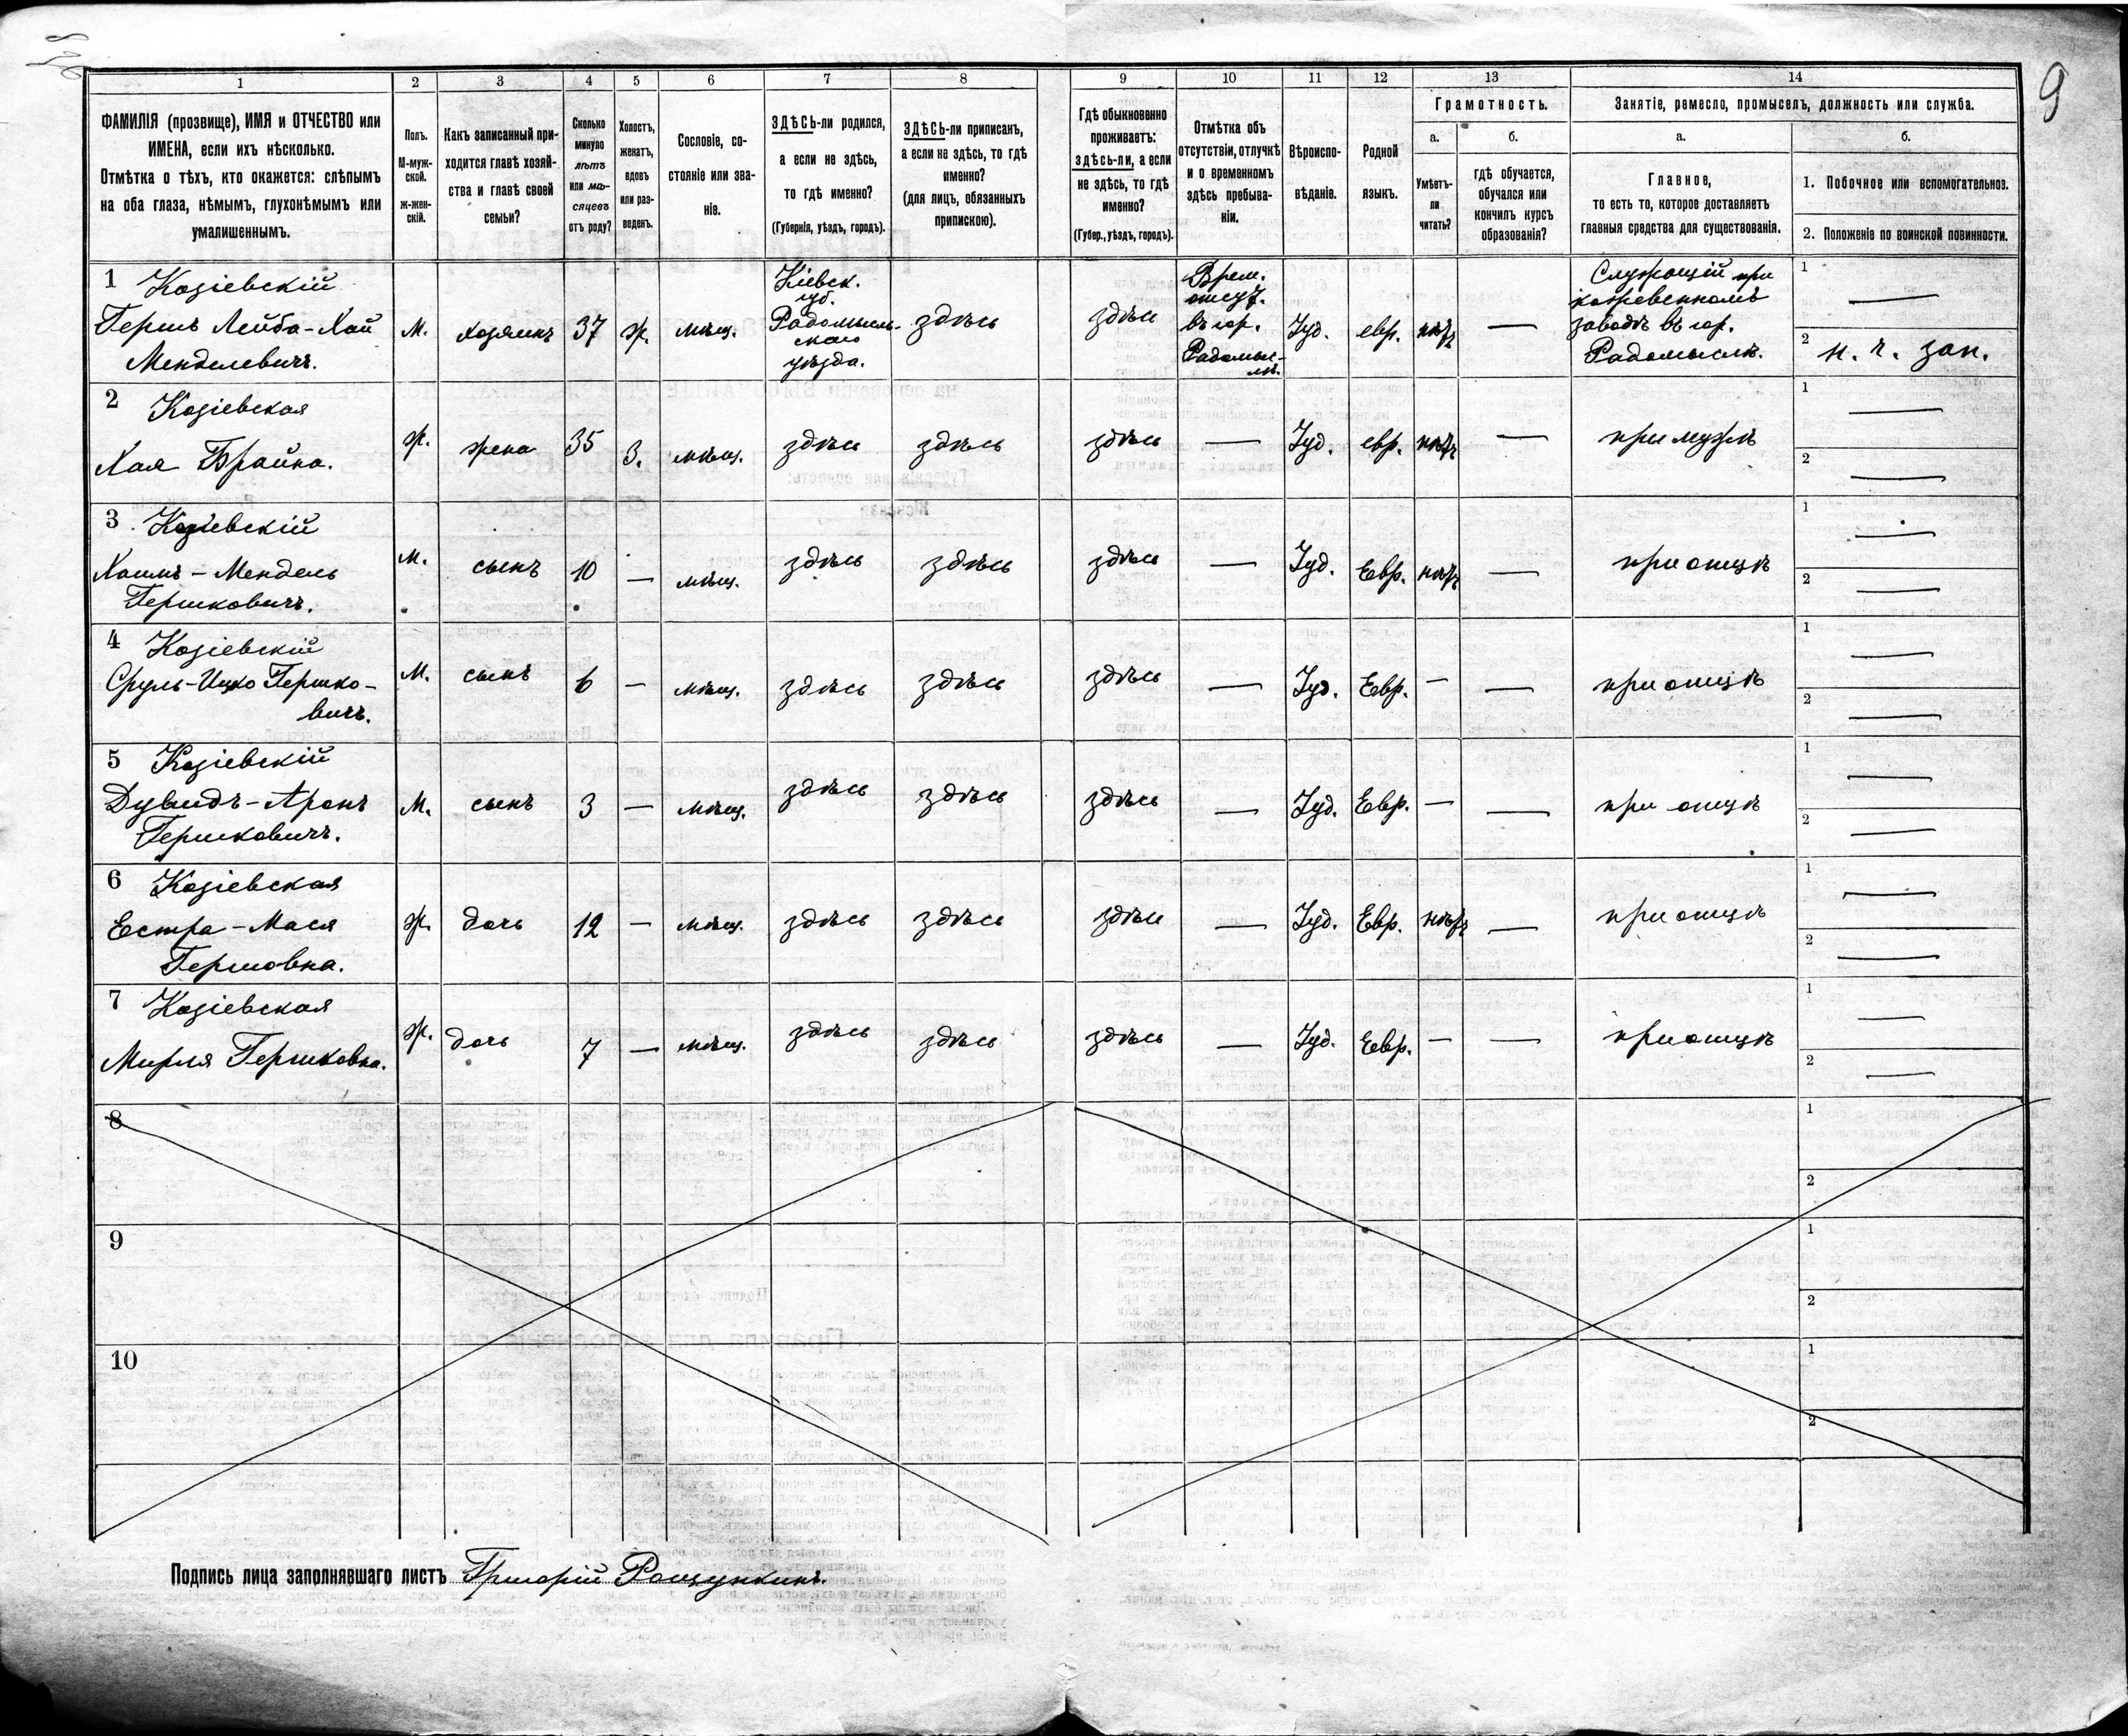 9
1 2 3 4 5 6 7 8 9 10 11 12 13 14
ФАМИЛІЯ (прозвище), ИМЯ и ОТЧЕСТВО или
ИМЕНА, если ихъ нѣсколько.
Отмѣтка о тѣхъ, кто окажется: слѣпымъ
на оба глаза, нѣмымъ, глухонѣмымъ или
умалишеннымъ.
Полъ.
М-муж-
ской.
ж-жен-
скій.
Какъ записанный при-
ходится главѣ хозяй-
ства и главѣ своей
семьи?
Сколько
минуло
лѣтъ
или мѣ-
сяцевъ
отъ роду?
Холостъ,
женатъ,
вдовъ
или раз-
веденъ.
Сословіе, со-
стояніе или зва-
ніе.
ЗДѢСЬ-ли родился,
а если не здѣсь,
то гдѣ именно?
(Губернія, уѣздъ, городъ).
ЗДѢСЬ-ли приписанъ,
а если не здѣсь, то гдѣ
именно?
(для лицъ, обязанныхъ
припискою).
Гдѣ обыкновенно
проживаетъ:
здѣсь-ли, а если
не здѣсь, то гдѣ
именно?
(Губер., уѣздъ, городъ).
Отмѣтка объ
отсутствіи, отлучкѣ
и о временномъ
здѣсь пребыва-
ніи.
Вѣроиспо-
вѣданіе.
Родной
языкъ.
Грамотность.
а.
Умѣетъ-
ли
читать?
б.
гдѣ обучается,
обучался или
кончилъ курсъ
образованія?
Занятіе, ремесло, промыселъ, должность или служба.
а.
Главное,
то есть то, которое доставляетъ
главныя средства для существованія.
б.
1. Побочное или вспомогательное.
2. Положеніе по воинской повинности.
1 Козіевскій
Гершъ Лейба-Хай
Менделевичъ.
М.
хозяинъ
37
ж.
мѣщ.
Кіевск.
губ.
Радомысль-
скаго
уѣзда.
здѣсь
здѣсь
Врем.
отсут.
въ гор.
Радомыс-
лѣ.
Іуд.
евр.
нѣтъ
—
Служащій при
кожевенномъ
заводѣ въ гор.
Радомыслѣ.
1 —
2 н. ч. зап.
2 Козіевская
Хая Брайна.
ж.
жена
35
З.
мѣщ.
здѣсь
здѣсь
здѣсь
—
Іуд.
евр.
нѣтъ
—
при мужѣ
1 —
2 —
3 Козіевскій
Хаимъ-Мендель
Гершковичъ.
М.
сынъ
10
—
мѣщ.
здѣсь
здѣсь
здѣсь
—
Іуд.
Евр.
нѣтъ
—
при отцѣ
1 —
2 —
4 Козіевскій
Сруль-Ицко Гершко-
вичъ.
М.
сынъ
6
—
мѣщ.
здѣсь
здѣсь
здѣсь
—
Іуд.
Евр.
—
—
при отцѣ
1 —
2 —
5 Козіевскій
Дувидъ-Аронъ
Гершковичъ.
М.
сынъ
3
—
мѣщ.
здѣсь
здѣсь
здѣсь
—
Іуд.
Евр.
—
—
при отцѣ
1 —
2 —
6 Козіевская
Естра-Мася
Гершовна.
ж.
дочь
12
—
мѣщ.
здѣсь
здѣсь
здѣсь
—
Іуд.
Евр.
нѣтъ
—
при отцѣ
1 —
2 —
7 Козіевская
Мирля Гершковна.
ж.
дочь
7
—
мѣщ.
здѣсь
здѣсь
здѣсь
—
Іуд.
Евр.
—
—
при отцѣ
1 —
2 —
8
1
2
9
1
2
10
1
2
Подпись лица заполнявшаго листъ Григорій